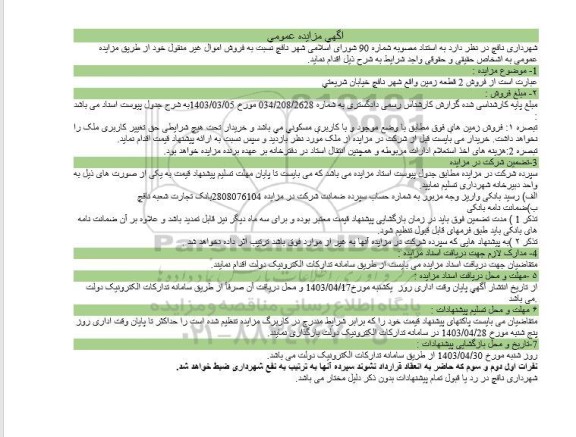 آگهي مزايده عمومي
شهرداری نافچ در نظر دارد به استناد مصوبه شماره 90 شورای اسلامی شهر نافچ نسبت به فروش اموال غیر منقول خود از طریق مزایده
عمومی به اشخاص حقیقی و حقوقی واجد شرایط به شرح ذیل اقدام نماید.
1- موضوع مزایده :
عبارت است از فروش 2 قطعه زمین واقع شهر نافچ خیابان شریعتی
۲- مبلغ فروش :
مبلغ پایه کارشناسی شده گزارش کارشناس رسمی دادگستری به شماره 034/208/2628 مورخ 1403/03/05به شرح جدول پیوست اسناد می باشد
:
تبصره ۱: فروش زمین های فوق مطابق با وضع موجود و با کاربری مسکونی می باشد و خریدار تحت هیچ شرایطی حق تغییر کاربری ملک را
نخواهد داشت. خریدار می بایست قبل از شرکت در مزایده از ملک مورد نظر بازدید و سپس نسبت به ارائه پیشنهاد قیمت اقدام نماید.
تبصره 2:هزینه های اخذ استعلام ادارات مربوطه و همچنین انتقال اسناد در دفترخانه بر عهده برنده مزایده خواهد بود.
3-تضمین شرکت در مزایده
سپرده شرکت در مزایده مطابق جدول پیوست اسناد مزایده می باشد که می بایست تا پایان مهلت تسلیم پیشنهاد قیمت به یکی از صورت های ذیل به
واحد دبیرخانه شهرداری تسلیم نمایید
الف) رسید بانکی واریز وجه مزبور به شماره حساب سپرده ضمانت شرکت در مزایده 2808076104بانک تجارت شعبه نافچ
ب)ضمانت نامه بانکی
تذکر 1 ) مدت تضمین فوق باید در زمان بازگشایی پیشنهاد قیمت معتبر بوده و برای سه ماه دیگر نیز قابل تمدید باشد و علاوه بر آن ضمانت نامه
های بانکی باید طبق فرمهای قابل قبول تنظیم شود.
تذکر ۲ )به پیشنهاد هایی که سپرده شرکت در مزایده آنها به غیر از موارد فوق باشد ترتیب اثر داده نخواهد شد
4- مدارک لازم جهت دریافت اسناد مزایده :
متقاضیان جهت دریافت اسناد مزایده می بایست از طریق سامانه تدارکات الکترونیک دولت اقدام نمایند.
۵ -مهلت و محل دریافت اسناد مزایده :
از تاریخ انتشار آگهی پایان وقت اداری روز یکشنبه مورخ1403/04/17 و محل دریافت آن صرفاً از طریق سامانه تدارکات الکترونیک دولت
می باشد.
۶ مهلت و محل تسلیم پیشنهادات :
متقاضیان می بایست پاکتهای پیشنهاد قیمت خود را که برابر شرایط مندرج در کاربرگ مزایده تنظیم شده است را حداکثر تا پایان وقت اداری روز
پنج شنبه مورخ 1403/04/28 در سامانه تدارکات الکترونیک دولت بارگذاری نمایند
7-تاریخ و محل بازگشایی پیشنهادات :
روز شنبه مورخ 1403/04/30 از طریق سامانه تدارکات الکترونیک دولت می باشد.
نفرات اول دوم و سوم که حاضر به انعقاد قرارداد نشوند سپرده آنها به ترتیب به نفع شهرداری ضبط خواهد شد.
شهرداری نافچ در رد یا قبول تمام پیشنهادات بدون ذکر دلیل مختار می باشد.